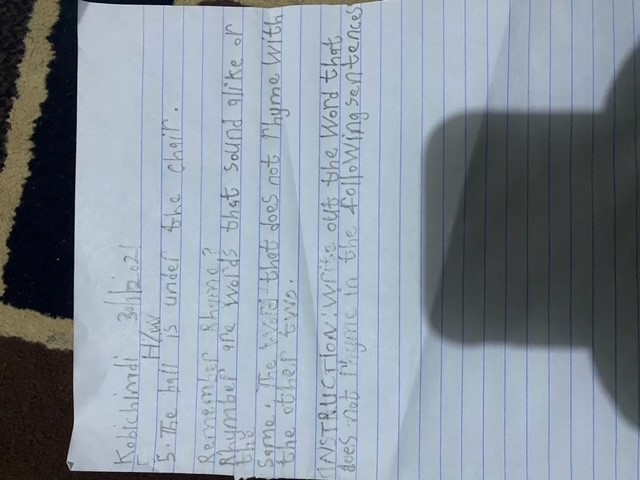 Kobichimdi 30/1/2021
H/W
5. The ball is under the chair.
Remember Rhyme?
Rhymber are words that sound alike or
the
same. The word that does not rhyme with
the other two.
INSTRUCTION: write out the word that
does not rhyme in the following sentences